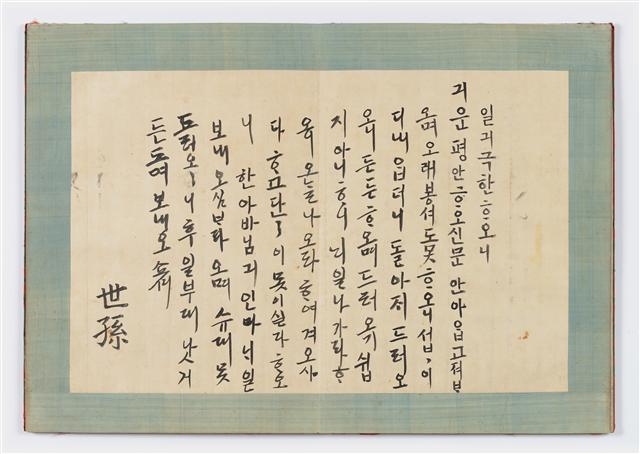 일긔극한ᄒᆞ오니
긔운평안ᄒᆞ오신문안아ᄋᆞᆸ고져ᄇᆞ
오며오래봉셔도못ᄒᆞ오니섭〻이
디내ᄋᆞᆸ더니돌아지드러오
오니든든ᄒᆞ오며드러오기쉽
지아니ᄒᆞ니ᄂᆡ일나가라ᄒᆞ
온ᄂᆞᆯ나오라ᄒᆞ여겨오시
다ᄒᆞ고단〻이못이실다ᄒᆞ오
니한아바님긔인마ᄂᆡ일
보내오심ᄇᆞ라오며슈대못
드러오〻니후일부ᄃᆡ낫거
든드려보내오쇼셔
世孫